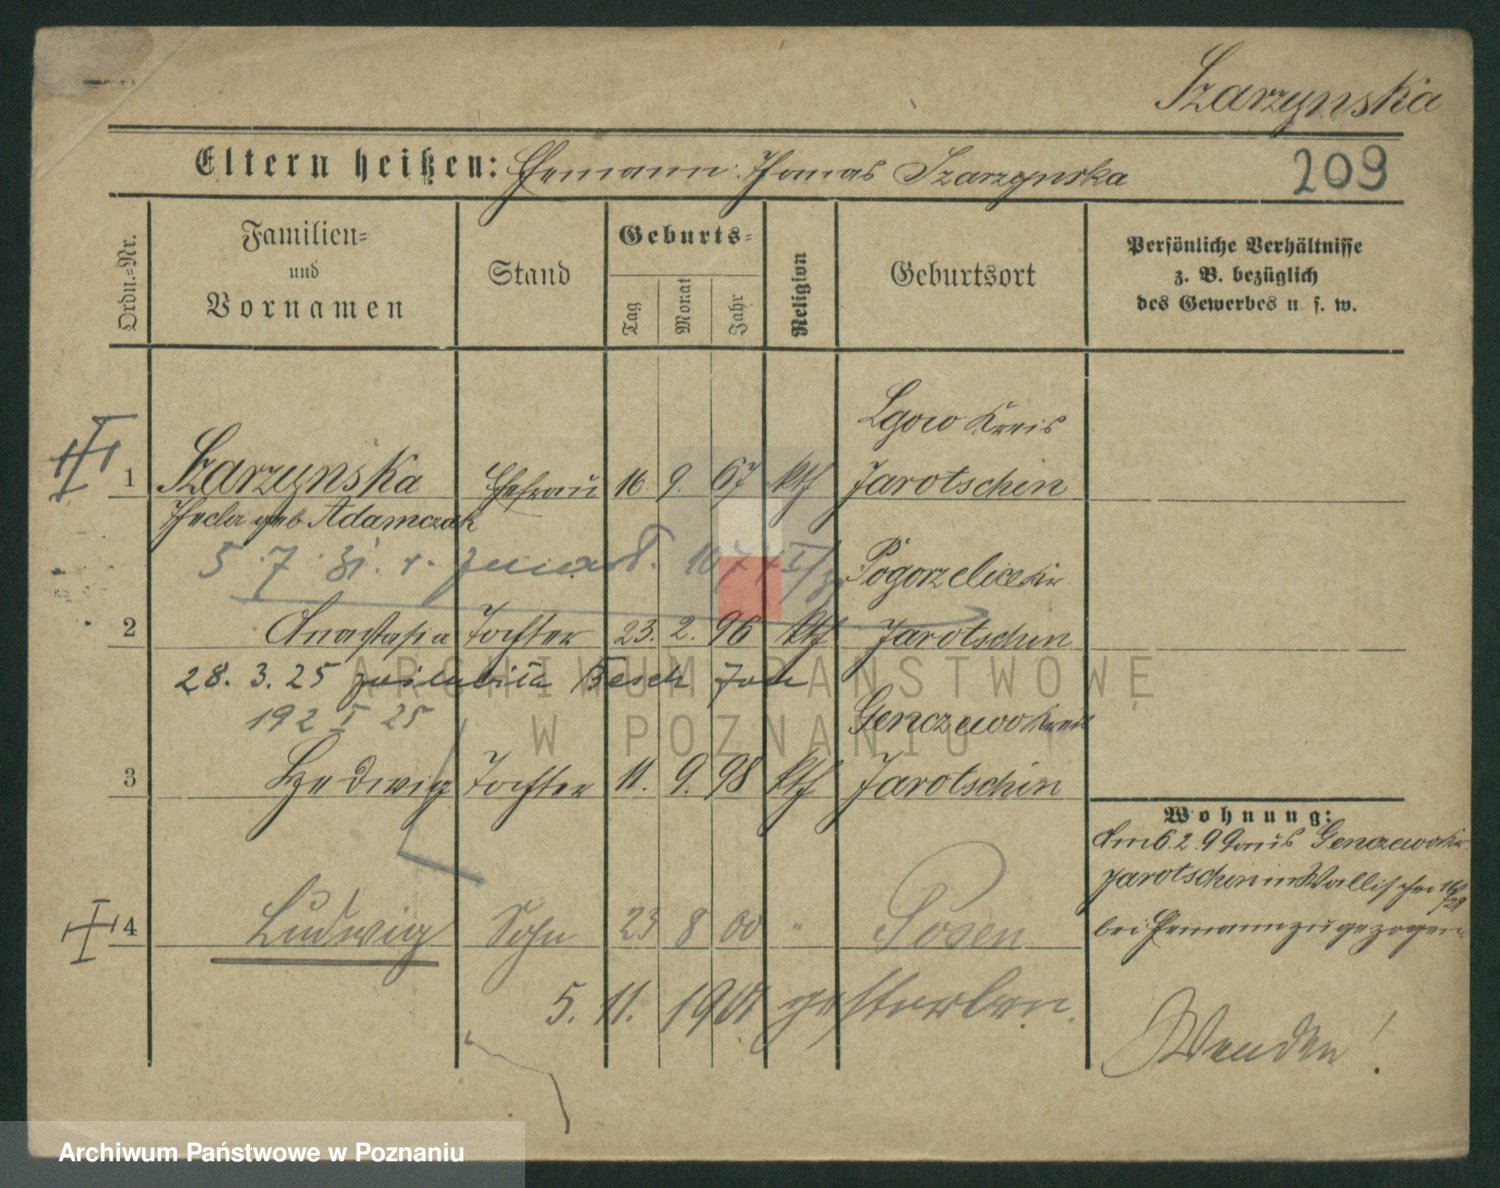 Szarzynska
Eltern heißen: Ehemann: Thomas Szarzynska
209
Ordn.-Nr.
Familien- und Vornamen
Stand
Geburts-
Tag
Monat
Jahr
Religion
Geburtsort
Persönliche Verhältnisse
z. B. bezüglich
des Gewerbes u. s. w.
Lgow Kreis
1 Szarzynska Ehefrau 16. 9. 67 kth Jarotschin
Thecla geb Adamczak
5. 7.
Pogorzelice Kr
2 Anastasia Tochter 23. 2. 96 kth Jarotschin
28. 3. 25
192 I 25
Genczewo Kreis
3 Hedwig Tochter 11. 9. 98 kth Jarotschin
Wohnung:
Am 6. 2. 99 aus Genczewo Kr.
Jarotschin in Wallischei
bei Ehemann zugezogen
4 Ludwig Sohn 23 8 00 " Posen
5. 11. 1901 gestorben.
Wenden!
ARCHIWUM PAŃSTWOWE
W POZNANIU
Archiwum Państwowe w Poznaniu